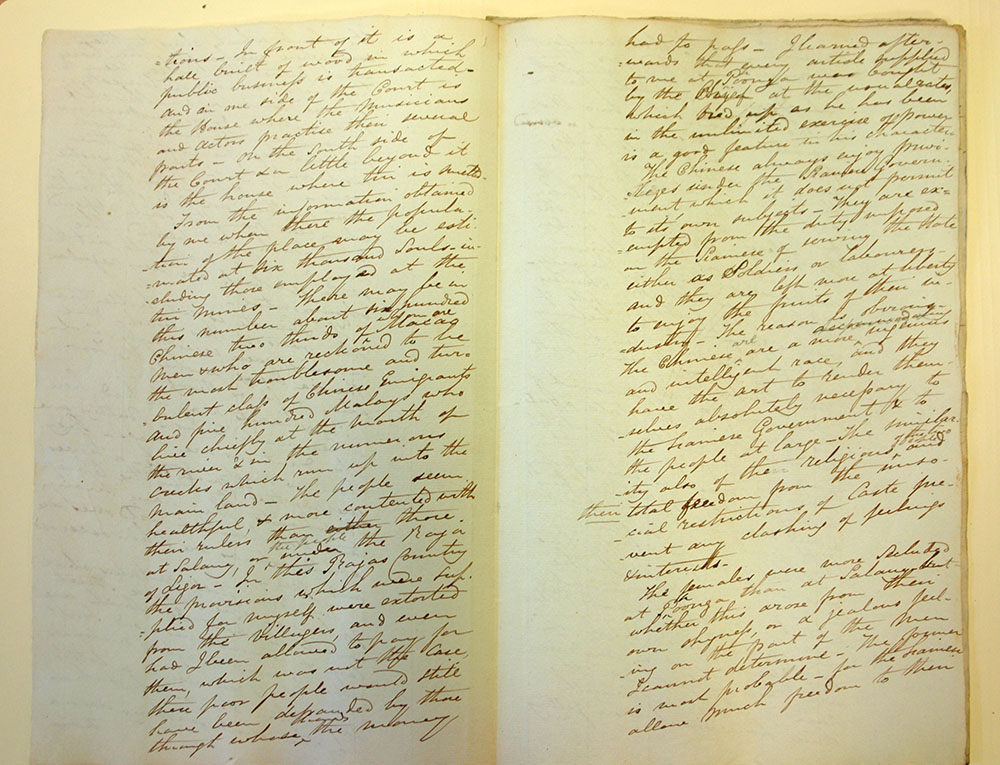 -tions - In front of it is a
hall built of wood in which
public business is transacted -
and in one side of the Court is
the House where the Musicians
and actors practise their several
parts - On the South side of
the Court & a little beyond it
is the house where tin is melted.
From the information obtained
by me when there the popula
-tion of the place may be esti
-mated at six thousand Souls - in
-cluding those employed at the
tin mines - There may be in
this number about six hundred
Chinese two thirds of whom are Macao
men & who are reckoned to be
the most troublesome and tur-
-bulent class of Chinese Emigrants
and five hundred Malays who
live chiefly at the mouth of
the river & in the numerous
creeks which run up into the
main land - The people seem
healthful, & more contented with
their rulers than either those
at Salang, or the people under the Raja
of Ligor - In this Rajas Country
the provisions which were sup-
-plied for myself were extorted
from the Villagers and even
had I been allowed to pay for
them, which was not the case,
these poor people would still
have been defrauded by those
through whose hands the money
had to pass - I learned after-
-wards that every article supplied
to me at Poonga was bought
by the Chief at the usual rates,
which bred up as he has been
in the unlimited exercise of power
is a good feature in his character
The Chinese always enjoy privi-
-leges under the Siamese Govern-
-ment which it does not permit
to its own subjects - They are ex=
-empted from the duty imposed
on the Siamese of serving the State
either as Soldiers or labourers -
and they are left more at liberty
to enjoy the fruits of their in-
-dustry - The reason is obvious -
the Chinese are a more accommodating ingenious
and intelligent race, are and they
have the art to render them-
-selves absolutely necessary to
the Siamese Government & to
the people at large - The similar-
-ity also of their religious and
then total freedom from the unso-
-cial restrictions of Caste pre-
-vent any clashing of feelings
& interests.
The females were more secluded
at Poonga than at Salang but
whether this arose from their
own shyness, or a jealous feel-
-ing on the part of the Men
I cannot determine - The former
is most probable - for the Siamese
allow much freedom to their